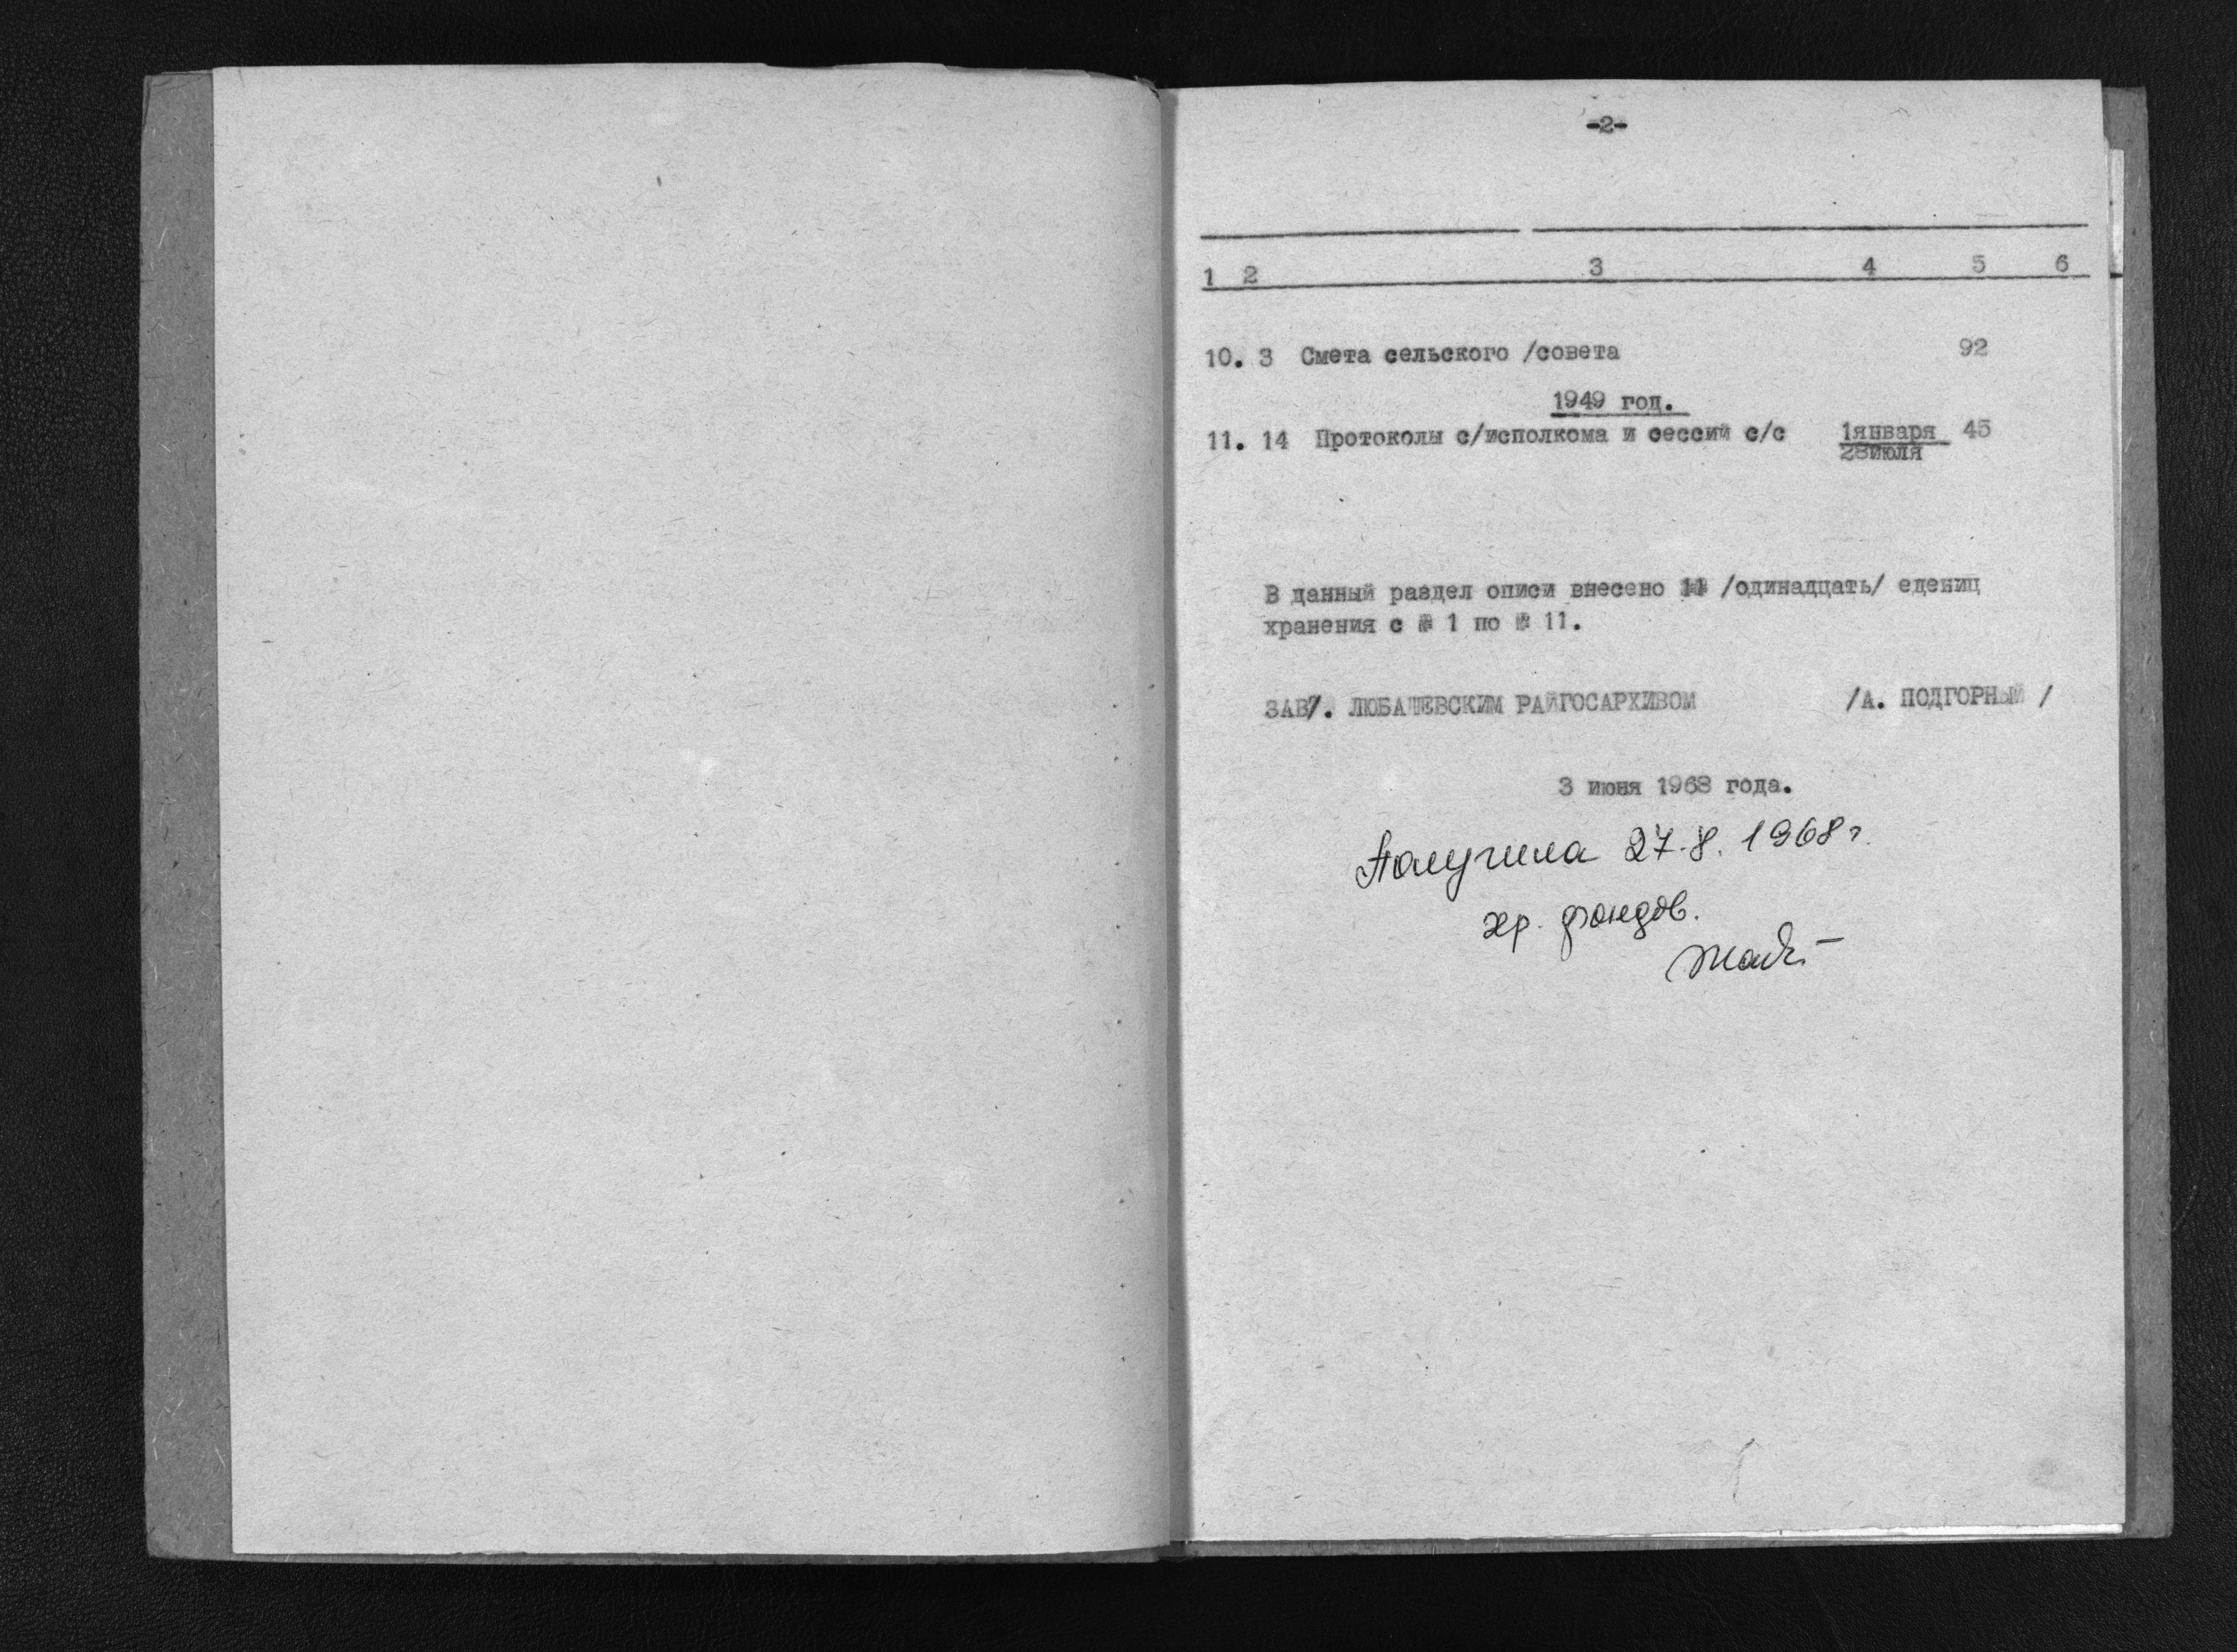 -2-
1 2 3 4 5 6
10. 3 Смета сельского /совета 92
1949 год.
11. 14 Протоколы с/исполкома и сессий с/с 1января 45
28июля
В данный раздел описи внесено 11 /одинадцать/ едениц
хранения с № 1 по № 11.
ЗАВ/. ЛЮБАШЕВСКИМ РАЙГОСАРХИВОМ /А. ПОДГОРНЫЙ /
3 июня 1968 года.
Получила 27.8.1968 г.
хр. фондов.